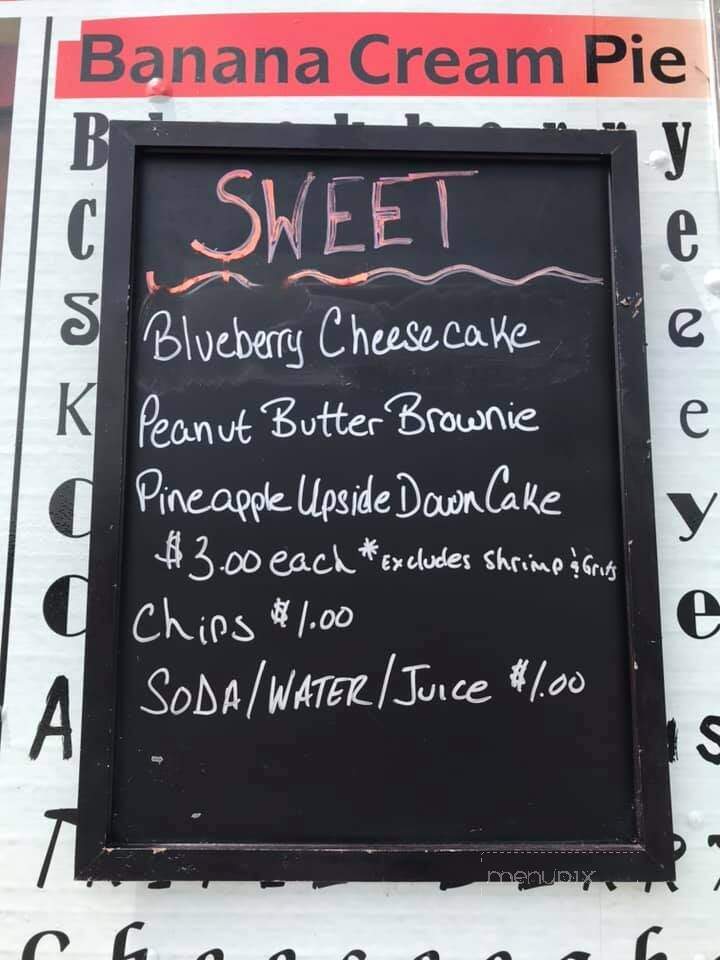 Banana Cream Pie
SWEET
Blueberry Cheesecake
Peanut Butter Brownie
Pineapple Upside Down Cake
$3.00 each *Excludes Shrimp & Grits
Chips $1.00
SODA/WATER/Juice $1.00
menupix